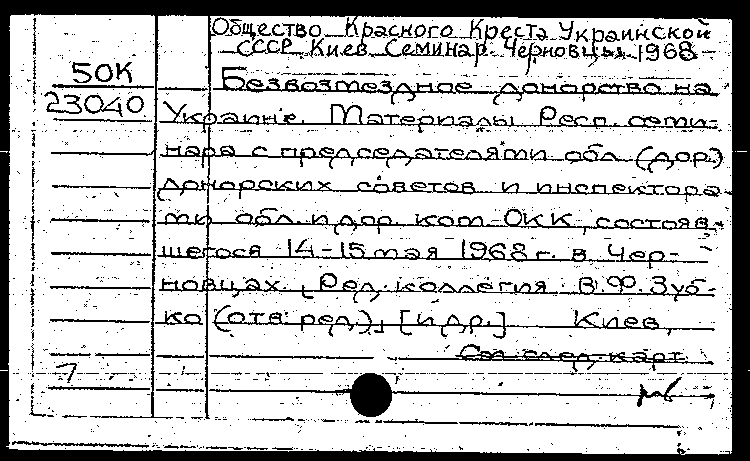 Общество Красного Креста Украинской
СССР. Киев. Семинар. Черновцы. 1968
50К
23040
Безвозмездное донорство на
Украине. Материалы Респ. семи-
нара с председателями обл. (дор.)
донорских советов и инспектора-
ми обл. и дор. ком. ОКК, состояв-
шегося 14-15 мая 1968 г. в Чер-
новцах. [Ред. коллегия: В.Ф. Зуб-
ко (отв. ред.)] [и др.] Киев,
См. след. карт.
7